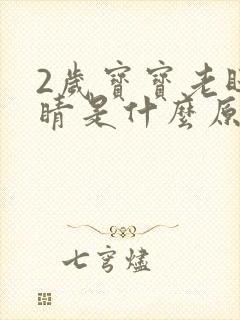 2歲寶寶老眨
睛是什麼原
七穹燼